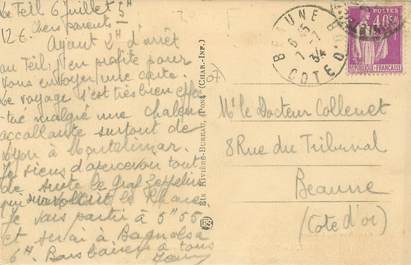 Le Teil 6 Juillet 5H
12E. Chers parents
Ayant 2H d'arrêt
au Teil, j'en profite pour
vous envoyer une carte.
Le voyage s'est très bien effec-
tué malgré une chaleur
accablante surtout de
Lyon à Montélimar.
Je viens d'apercevoir tout
de suite le Graf Zeppelin
qui survolait le Rhône
Je vais partir à 5H55
et serai à Bagnols à
6H. Bons baisers à tous
Ets Rivière-Bureau, Pons (Char.-Inf.)
BEAUNE
7 -7
34
COTE D'OR
40c
POSTES
FRANÇAISE
Mr le Docteur Collenet
8 Rue du Tribunal
Beaune
(Côte d'or)